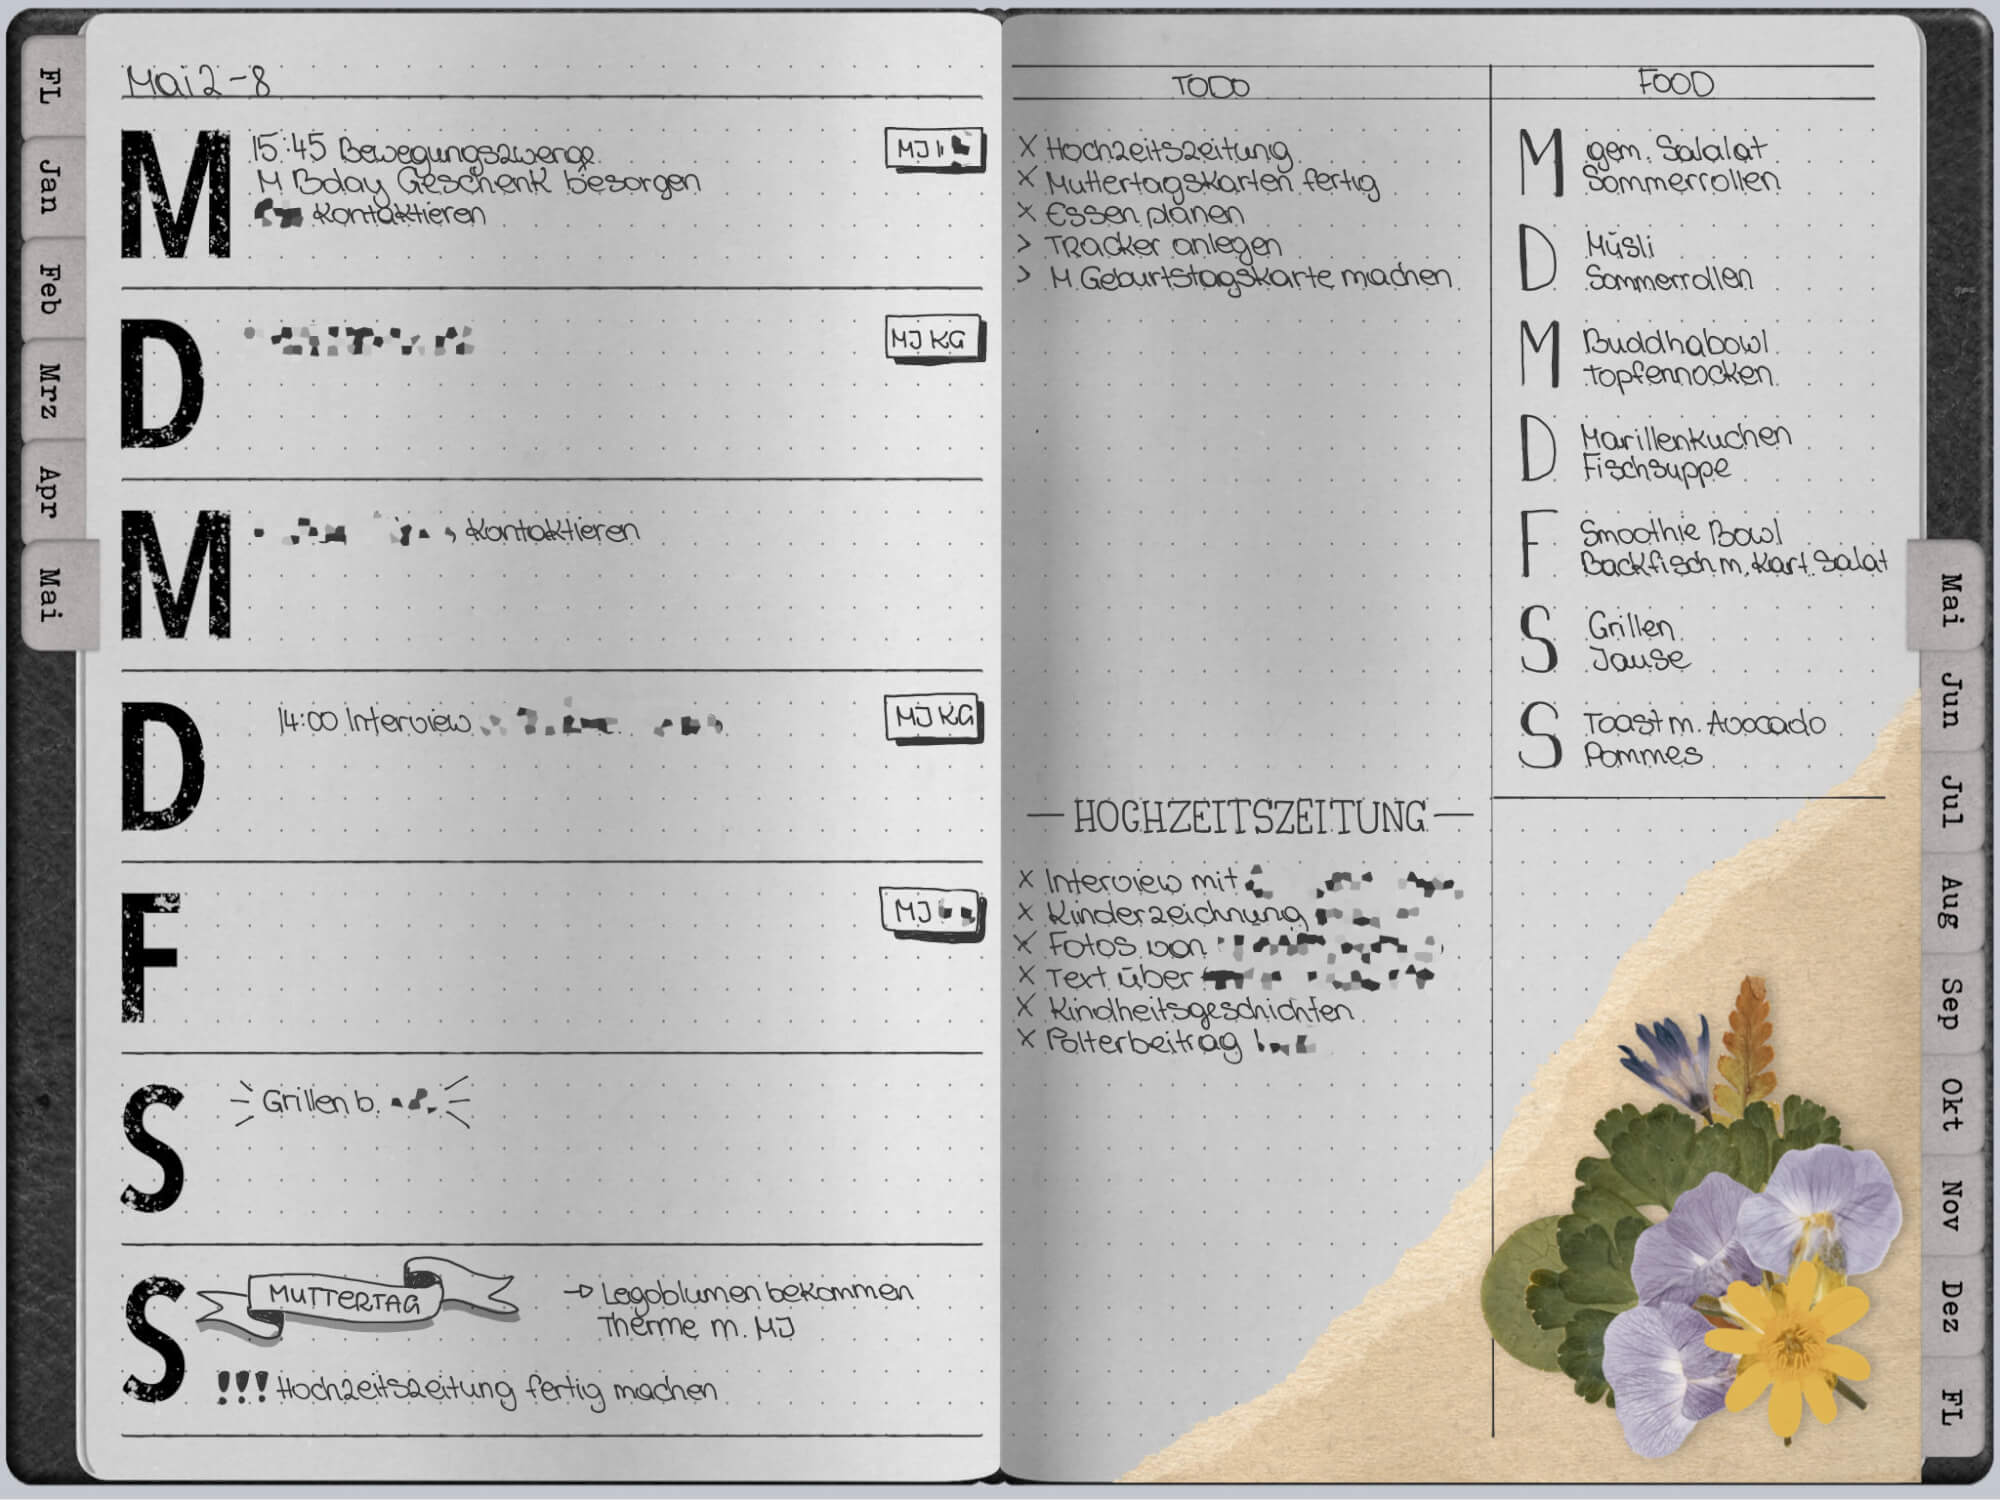 FL
Jan
Feb
Mrz
Apr
Mai
Mai 2-8
M
15:45 Bewegungszwerge
M Bday Geschenk besorgen
Kontaktieren
MJ
D
MJ KG
M
Kontaktieren
D
14:00 Interview
MJ KG
F
MJ
S
Grillen b.
S
MUTTERTAG
→ Legoblumen bekommen
Therme m. MJ
!!! Hochzeitszeitung fertig machen
TODO
x Hochzeitszeitung
x Muttertagskarten fertig
x Essen planen
> Tracker anlegen
> M Geburtstagskarte machen
— HOCHZEITSZEITUNG —
x Interview mit
x Kinderzeichnung
x Fotos von
x Text über
x Kindheitsgeschichten
x Polterbeitrag
FOOD
M gem. Salalat
Sommerrollen
D Müsli
Sommerrollen
M Buddhabowl
Topfennocken
D Marillenkuchen
Fischsuppe
F Smoothie Bowl
Backfisch m. Kart. Salat
S Grillen
Jause
S Toast m. Avocado
Pommes
Mai
Jun
Jul
Aug
Sep
Okt
Nov
Dez
FL